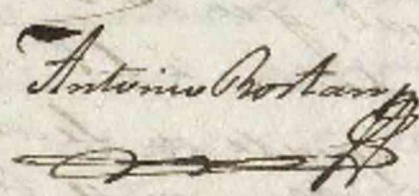 Antonio Rostan